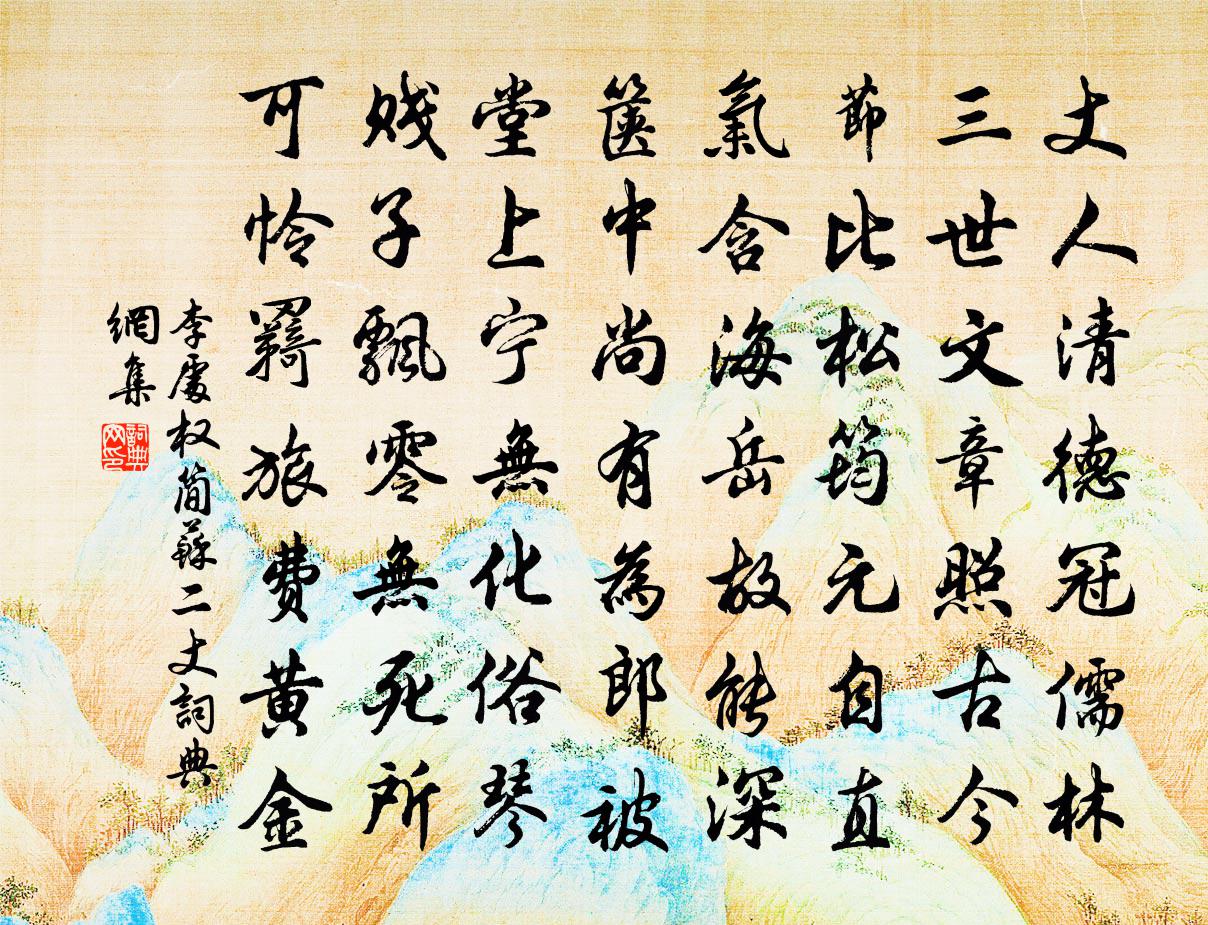 丈人清德冠儒林
三世文章照古今
節比松筠元自直
氣含海岳故能深
篋中尚有為郎被
堂上宁無化俗琴
賤子飄零無死所
可怜羇旅費黃金
李處权简蘇二丈詞典
網集
詞典
网印